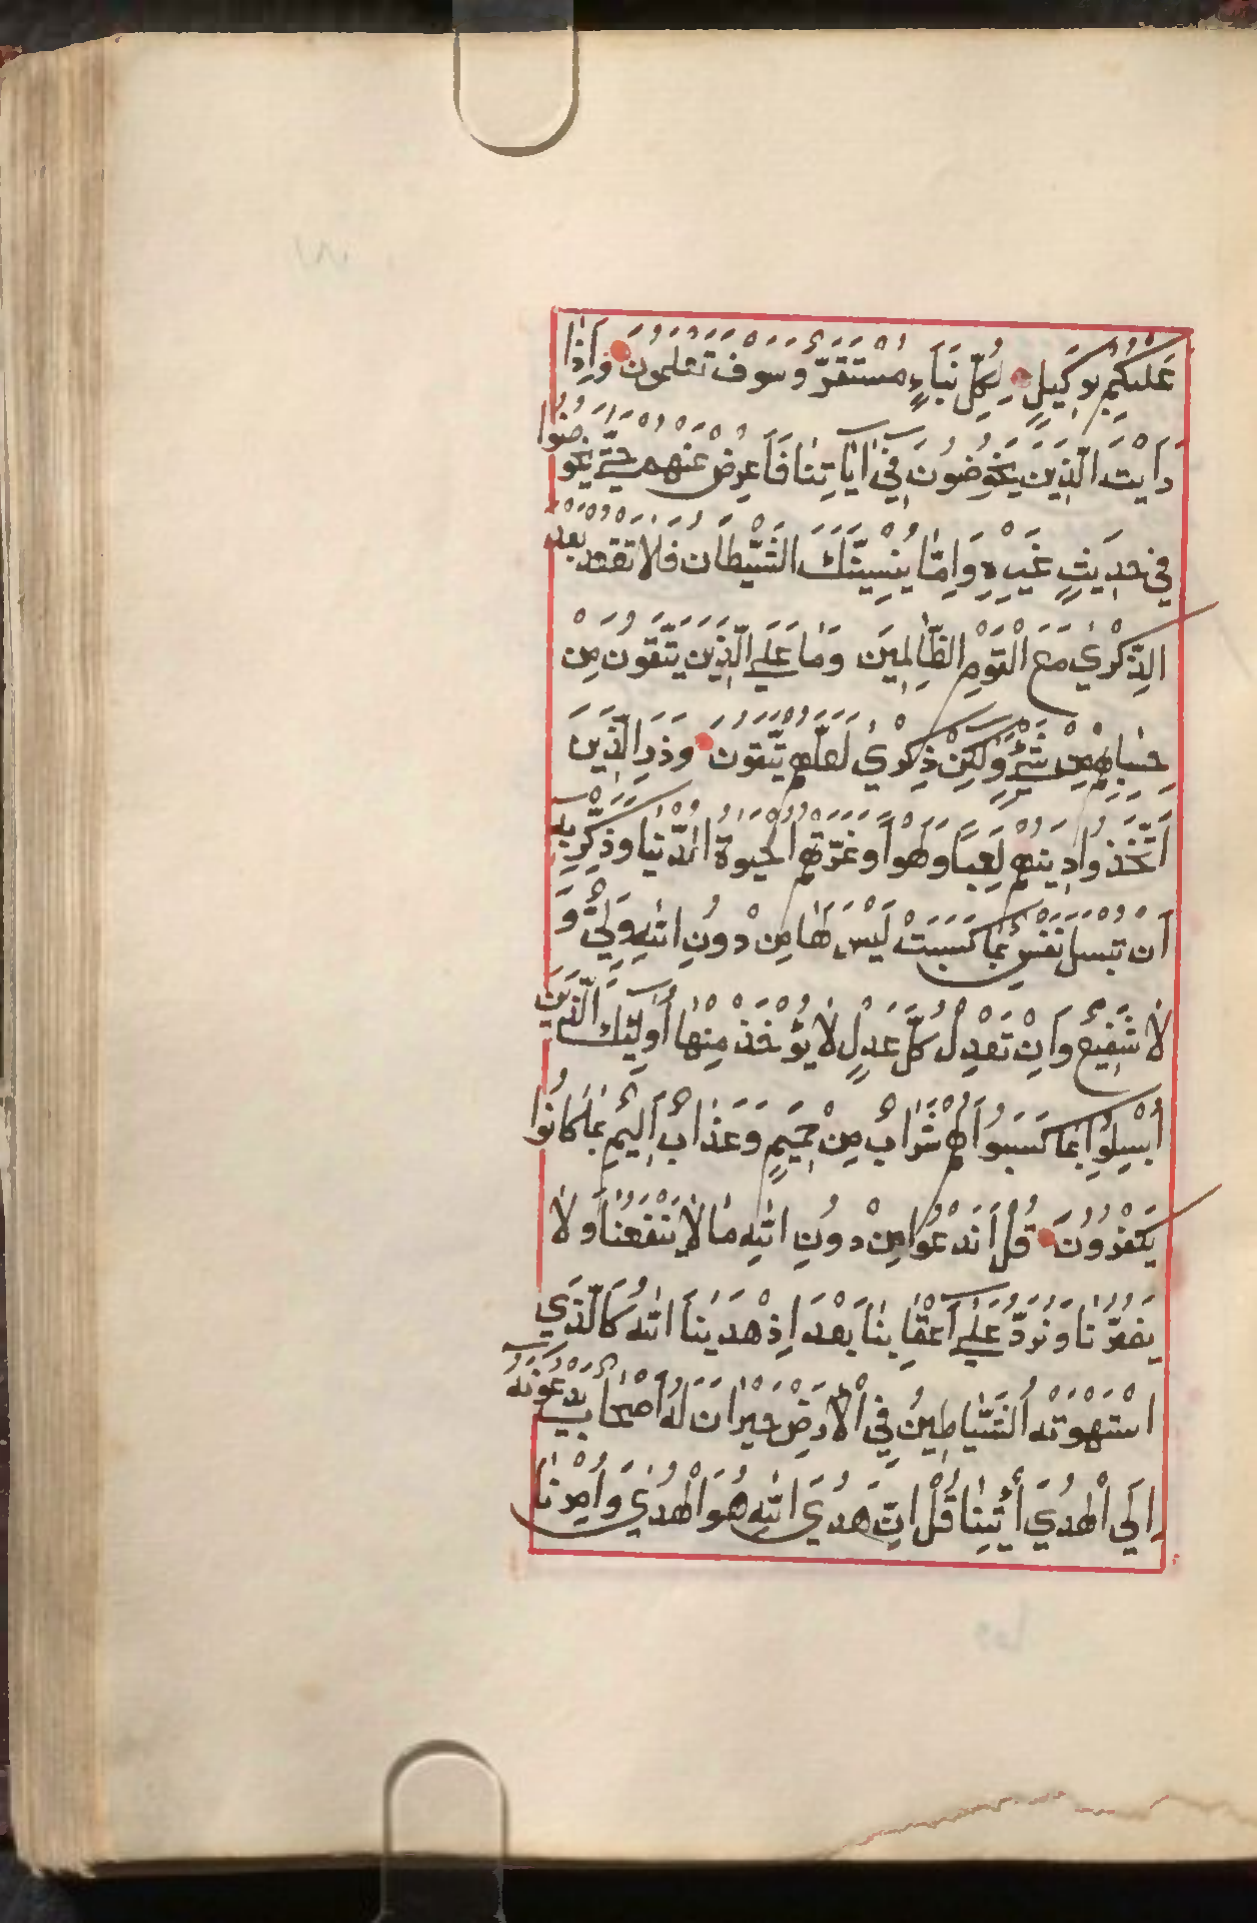 عَلَيْكُمْ بِوَكِيلٍ لِكُلِّ نَبَاءٍ مُسْتَقَرٌّ وَسَوْفَ تَعْلَمُونَ وَاِذَا
رَاَيْتَ الَّذِينَ يَخُوضُونَ فِي اٰيَاتِنَا فَاَعْرِضْ عَنْهُمْ حَتّٰي يَخُوضُوا
فِي حَدِيثٍ غَيْرِهِ وَاِمَّا يُنْسِيَنَّكَ الشَّيْطَانُ فَلَا تَقْعُدْ بَعْدَ
الذِّكْرٰي مَعَ الْقَوْمِ الظَّالِمِينَ وَمَا عَلَي الَّذِينَ يَتَّقُونَ مِنْ
حِسَابِهِمْ مِنْ شَيْءٍ وَلٰكِنْ ذِكْرٰي لَعَلَّهُمْ يَتَّقُونَ وَذَرِ الَّذِينَ
اَتَّخَذُوا دِينَهُمْ لَعِبًا وَلَهْوًا وَغَرَّتْهُمُ الْحَيٰوةُ الدُّنْيَا وَذَكِّرْ بِهِ
اَنْ تُبْسَلَ نَفْسٌ بِمَا كَسَبَتْ لَيْسَ لَهَا مِنْ دُونِ اللّٰهِ وَلِيٌّ وَ
لَا شَفِيعٌ وَاِنْ تَعْدِلْ كُلَّ عَدْلٍ لَا يُؤْخَذْ مِنْهَا اُولٰئِكَ الَّذِينَ
اُبْسِلُوا بِمَا كَسَبُوا لَهُمْ شَرَابٌ مِنْ حَمِيمٍ وَعَذَابٌ اَلِيمٌ بِمَا كَانُوا
يَكْفُرُونَ قُلْ اَنَدْعُوا مِنْ دُونِ اللّٰهِ مَا لَا يَنْفَعُنَا وَلَا
يَضُرُّنَا وَنُرَدُّ عَلٰي اَعْقَابِنَا بَعْدَ اِذْ هَدَينَا اللّٰهُ كَالَّذِي
اسْتَهْوَتْهُ الشَّيَاطِينُ فِي الْاَرْضِ حَيْرَانَ لَهُ اَصْحَابٌ يَدْعُونَهُ
اِلَي الْهُدَي أْئْتِنَا قُلْ اِنَّ هُدَي اللّٰهِ هُوَ الْهُدٰي وَاُمِرْنَا